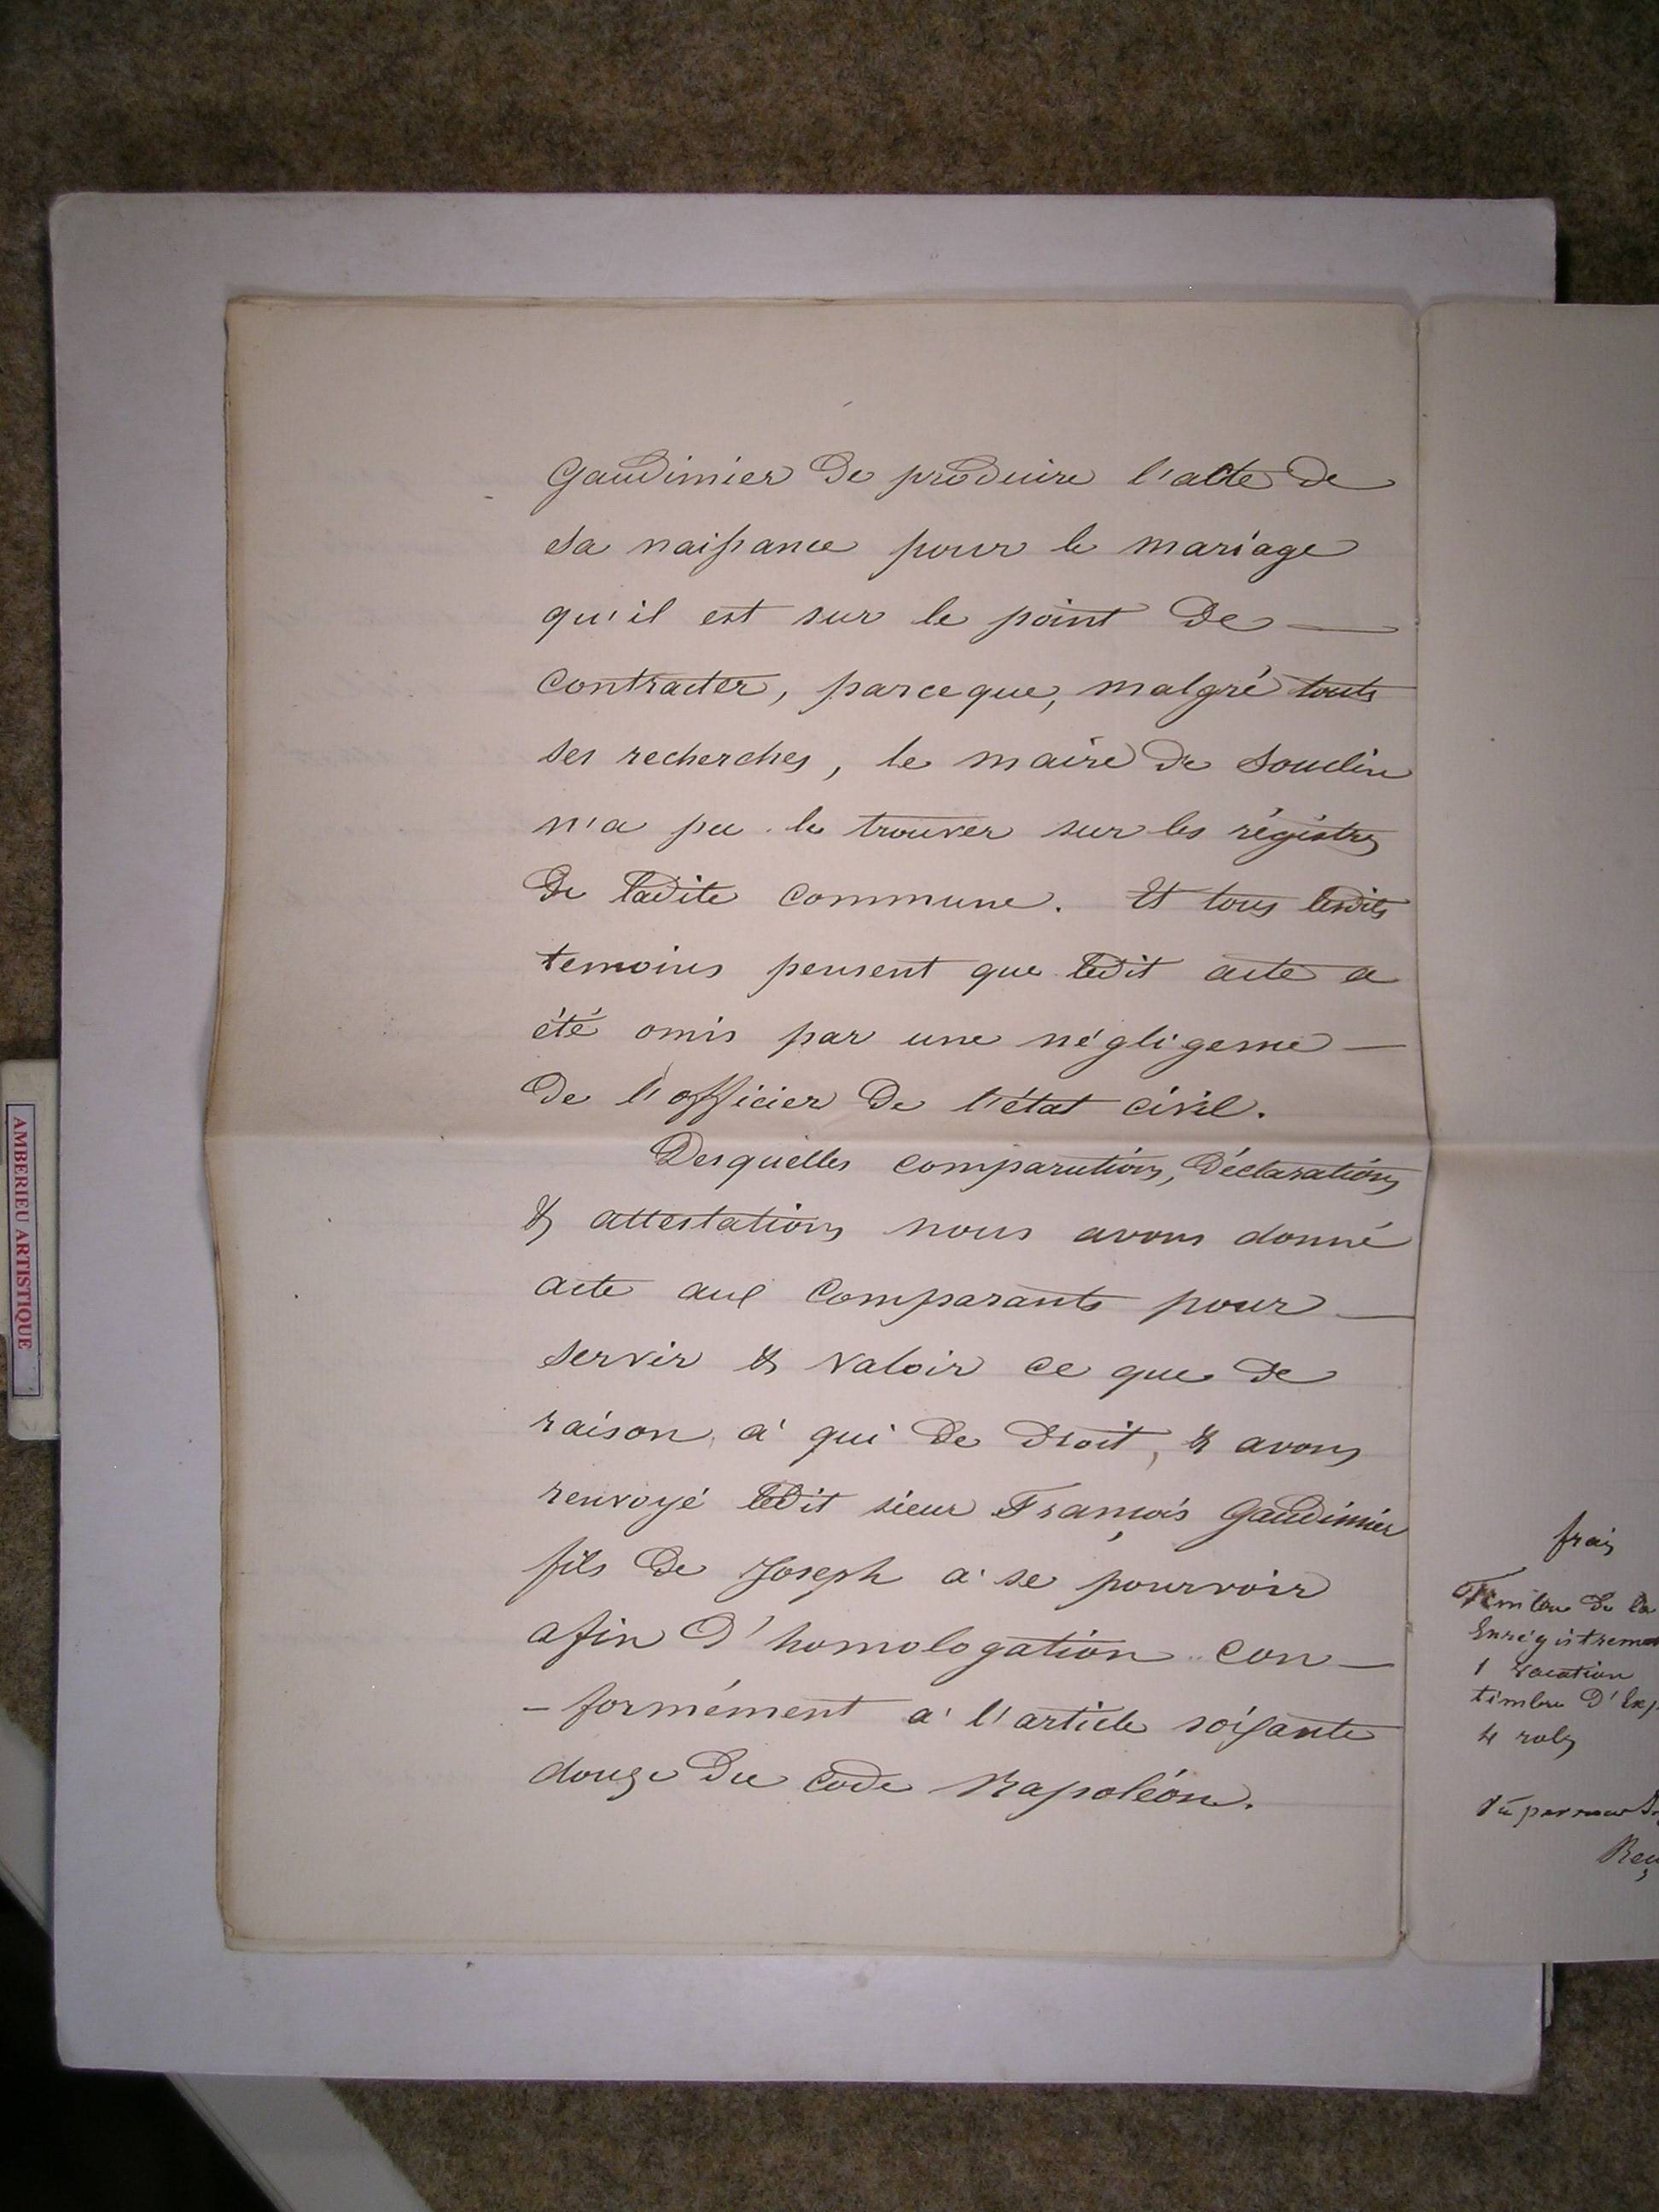 Gaudimier de produire l'acte de
sa naissance pour le mariage
qu'il est sur le point de —
contracter, parceque, malgré touts
ses recherches, le maire de Souclin
n'a pu le trouver sur les régistres
de ladite commune. Et tous lesdits
temoins pensent que ledit acte a
été omis par une négligence —
de l'officier de l'état civil.
Desquelles comparutions, déclarations
& attestations nous avons donné
acte aux comparants pour —
servir & valoir ce que de
raison à qui de droit, & avons
renvoyé ledit sieur François Gaudimier
fils de Joseph à se pourvoir
afin d'homologation con —
— formément à l'article soixante
douze du code Napoléon.
frais
Timbre de la
Enrégistreme
1 vacation
timbre d'Exp
4 roles
AMBERIEU ARTISTIQUE